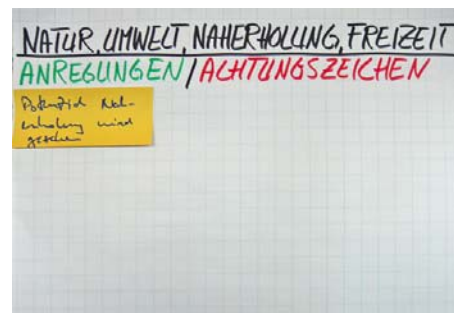 NATUR, UMWELT, NAHERHOLUNG, FREIZEIT
ANREGUNGEN / ACHTUNGSZEICHEN
Potential Nah-
erholung wird
gesehen